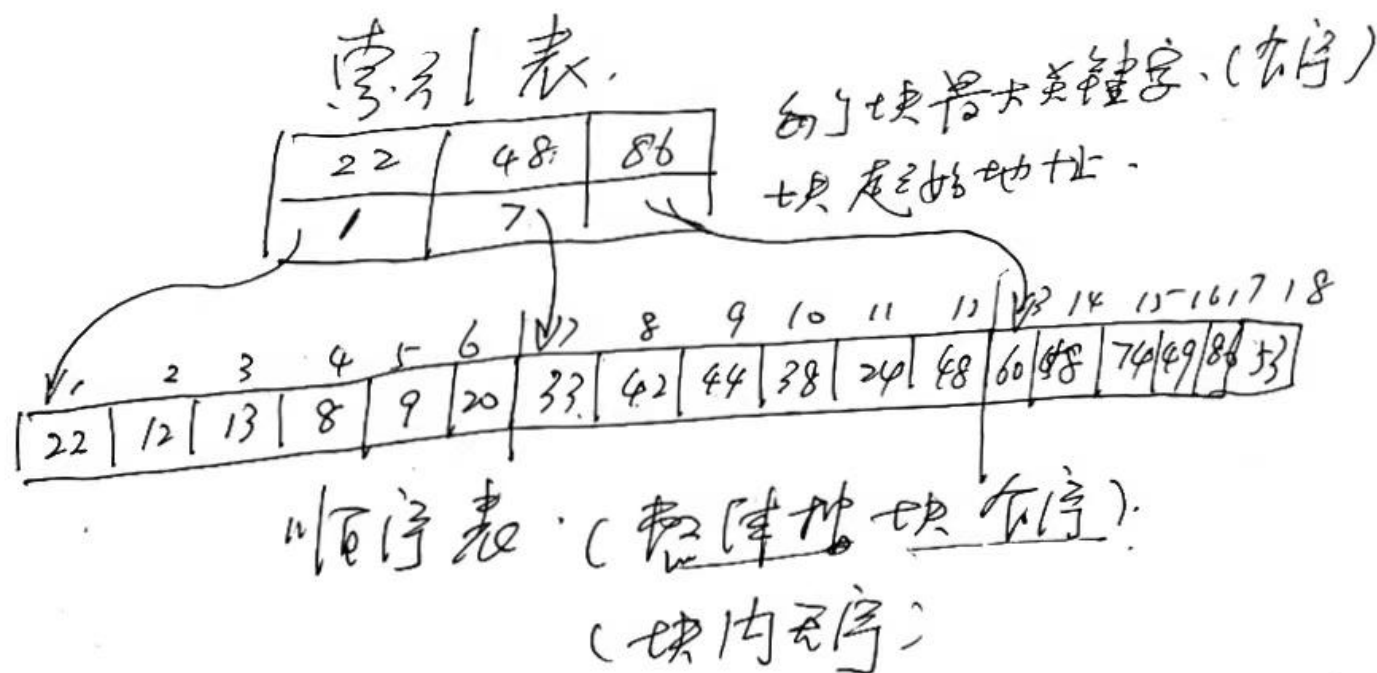 索引表.
每个块最大关键字、(有序)
22 48 86
块起始地址.
1 7
1 2 3 4 5 6 7 8 9 10 11 12 13 14 15 16 17 18
22 12 13 8 9 20 33 42 44 38 24 48 60 58 74 49 86 53
顺序表.(整体按块有序).
(块内无序)